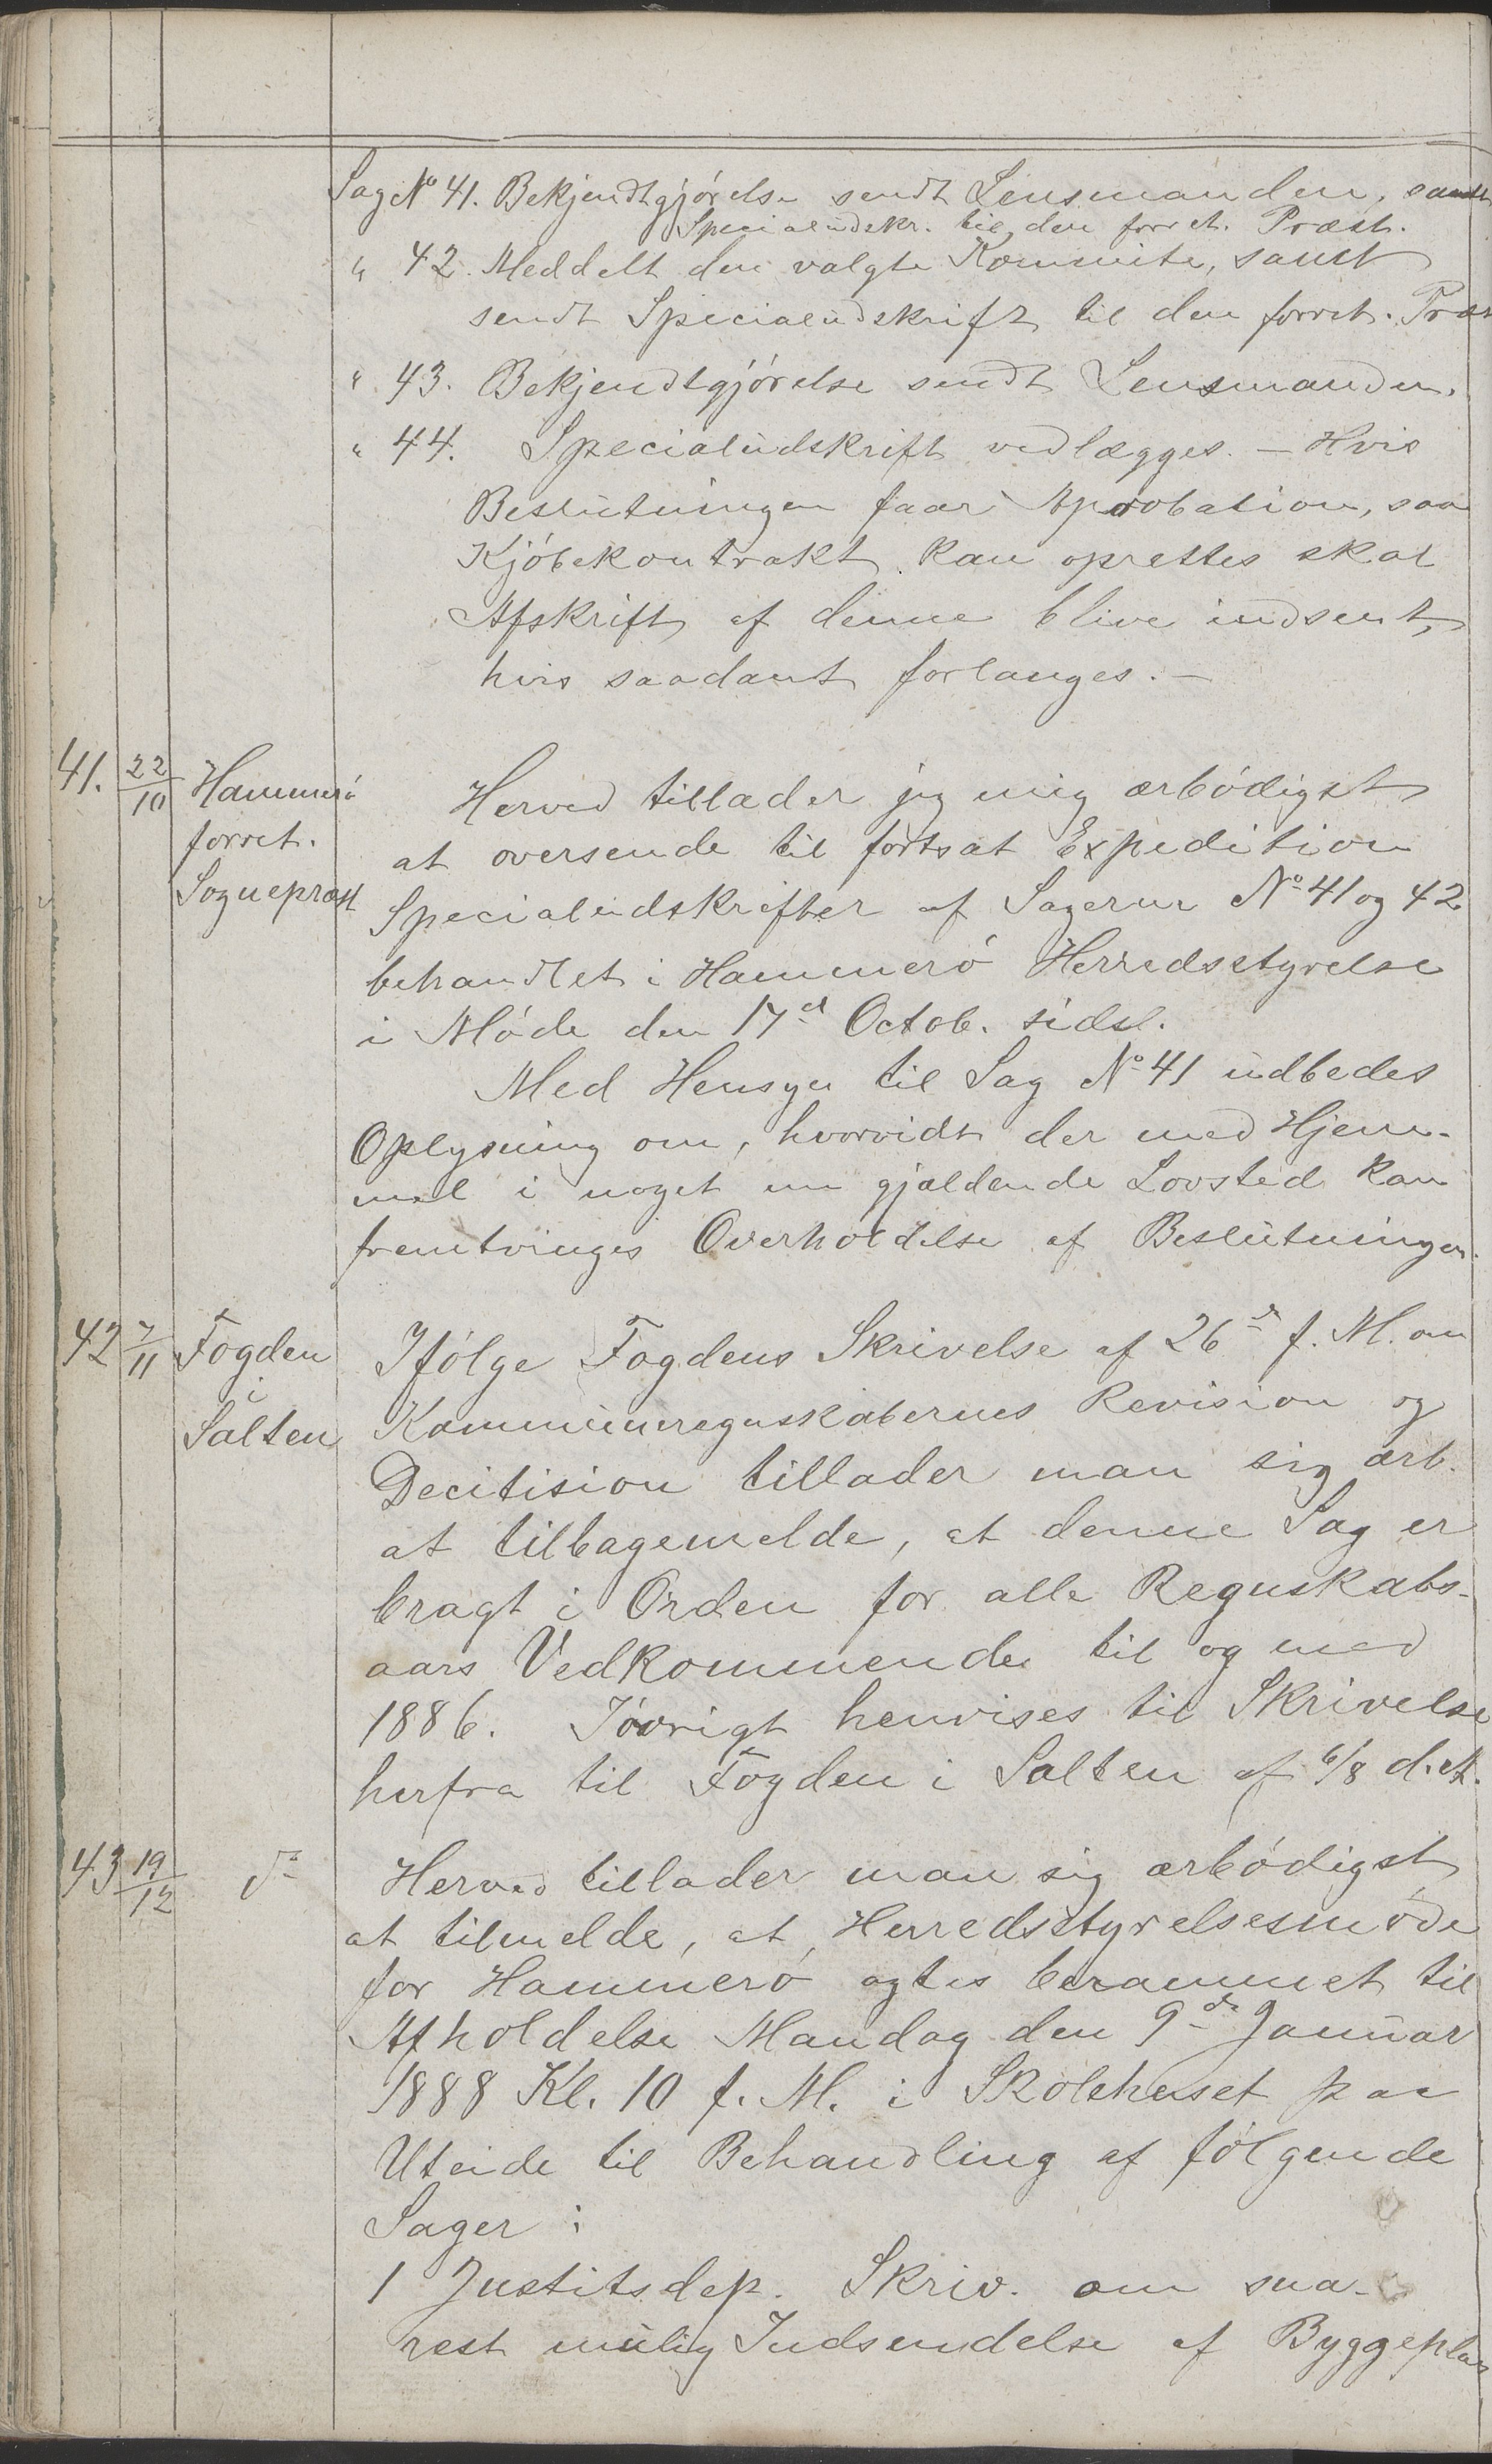 Sag No 41. Bekjendtgjørelse sendt Lensmanden, samt
Specialudskr. til den forret. Præst.
" 42. Meddelt den valgte Kommite, samt
sendt Specialudskrift til den forret. Præst
" 43. Bekjendtgjørelse sendt Lensmanden.
" 44. Specialudskrift vedlægges. – Hvis
Beslutningen faar Aprobation, saa
Kjøbekontrakt kan oprettes skal
Afskrift af denne blive indsent,
hvis saadant forlanges. –
41. 22/10 Hammerø
forret.
Sognepræst
Herved tillader jeg mig ærbødigst
at oversende til fortsat Expedition
Specialudskrifter af Sagerne No 41 og 42
behandlet i Hammerø Herredsstyrelse
i Møde den 17d Octob. sidsl.
Med Hensyn til Sag No 41 udbedes
Oplysning om, hvorvidt der med Hjem-
mel i noget nu gjældende Lovsted kan
fremtvinges Overholdelse af Beslutningen.
42 7/11 Fogden
i
Salten
Ifølge Fogdens Skrivelse af 26de f. M. om
Kommuneregnskabernes Revision og
Decitision tillader man sig ærb.
at tilbagemelde, at denne Sag er
bragt i Orden for alle Regnskabs-
aars Vedkommende til og med
1886. Iøvrigt henvises til Skrivelse
herfra til Fogden i Salten af 6/8 d. A.
43 19/12 do
Herved tillader man sig ærbødigst
at tilmelde, at Herredsstyrelsesmøde
for Hammerø agtes berammet til
Afholdelse Mandag den 9de Januar
1888 Kl. 10 f. M. i Skolehuset paa
Uteide til Behandling af følgende
Sager:
1 Justitsdep. Skriv. om sna-
rest mulig Indsendelse af Byggeplan